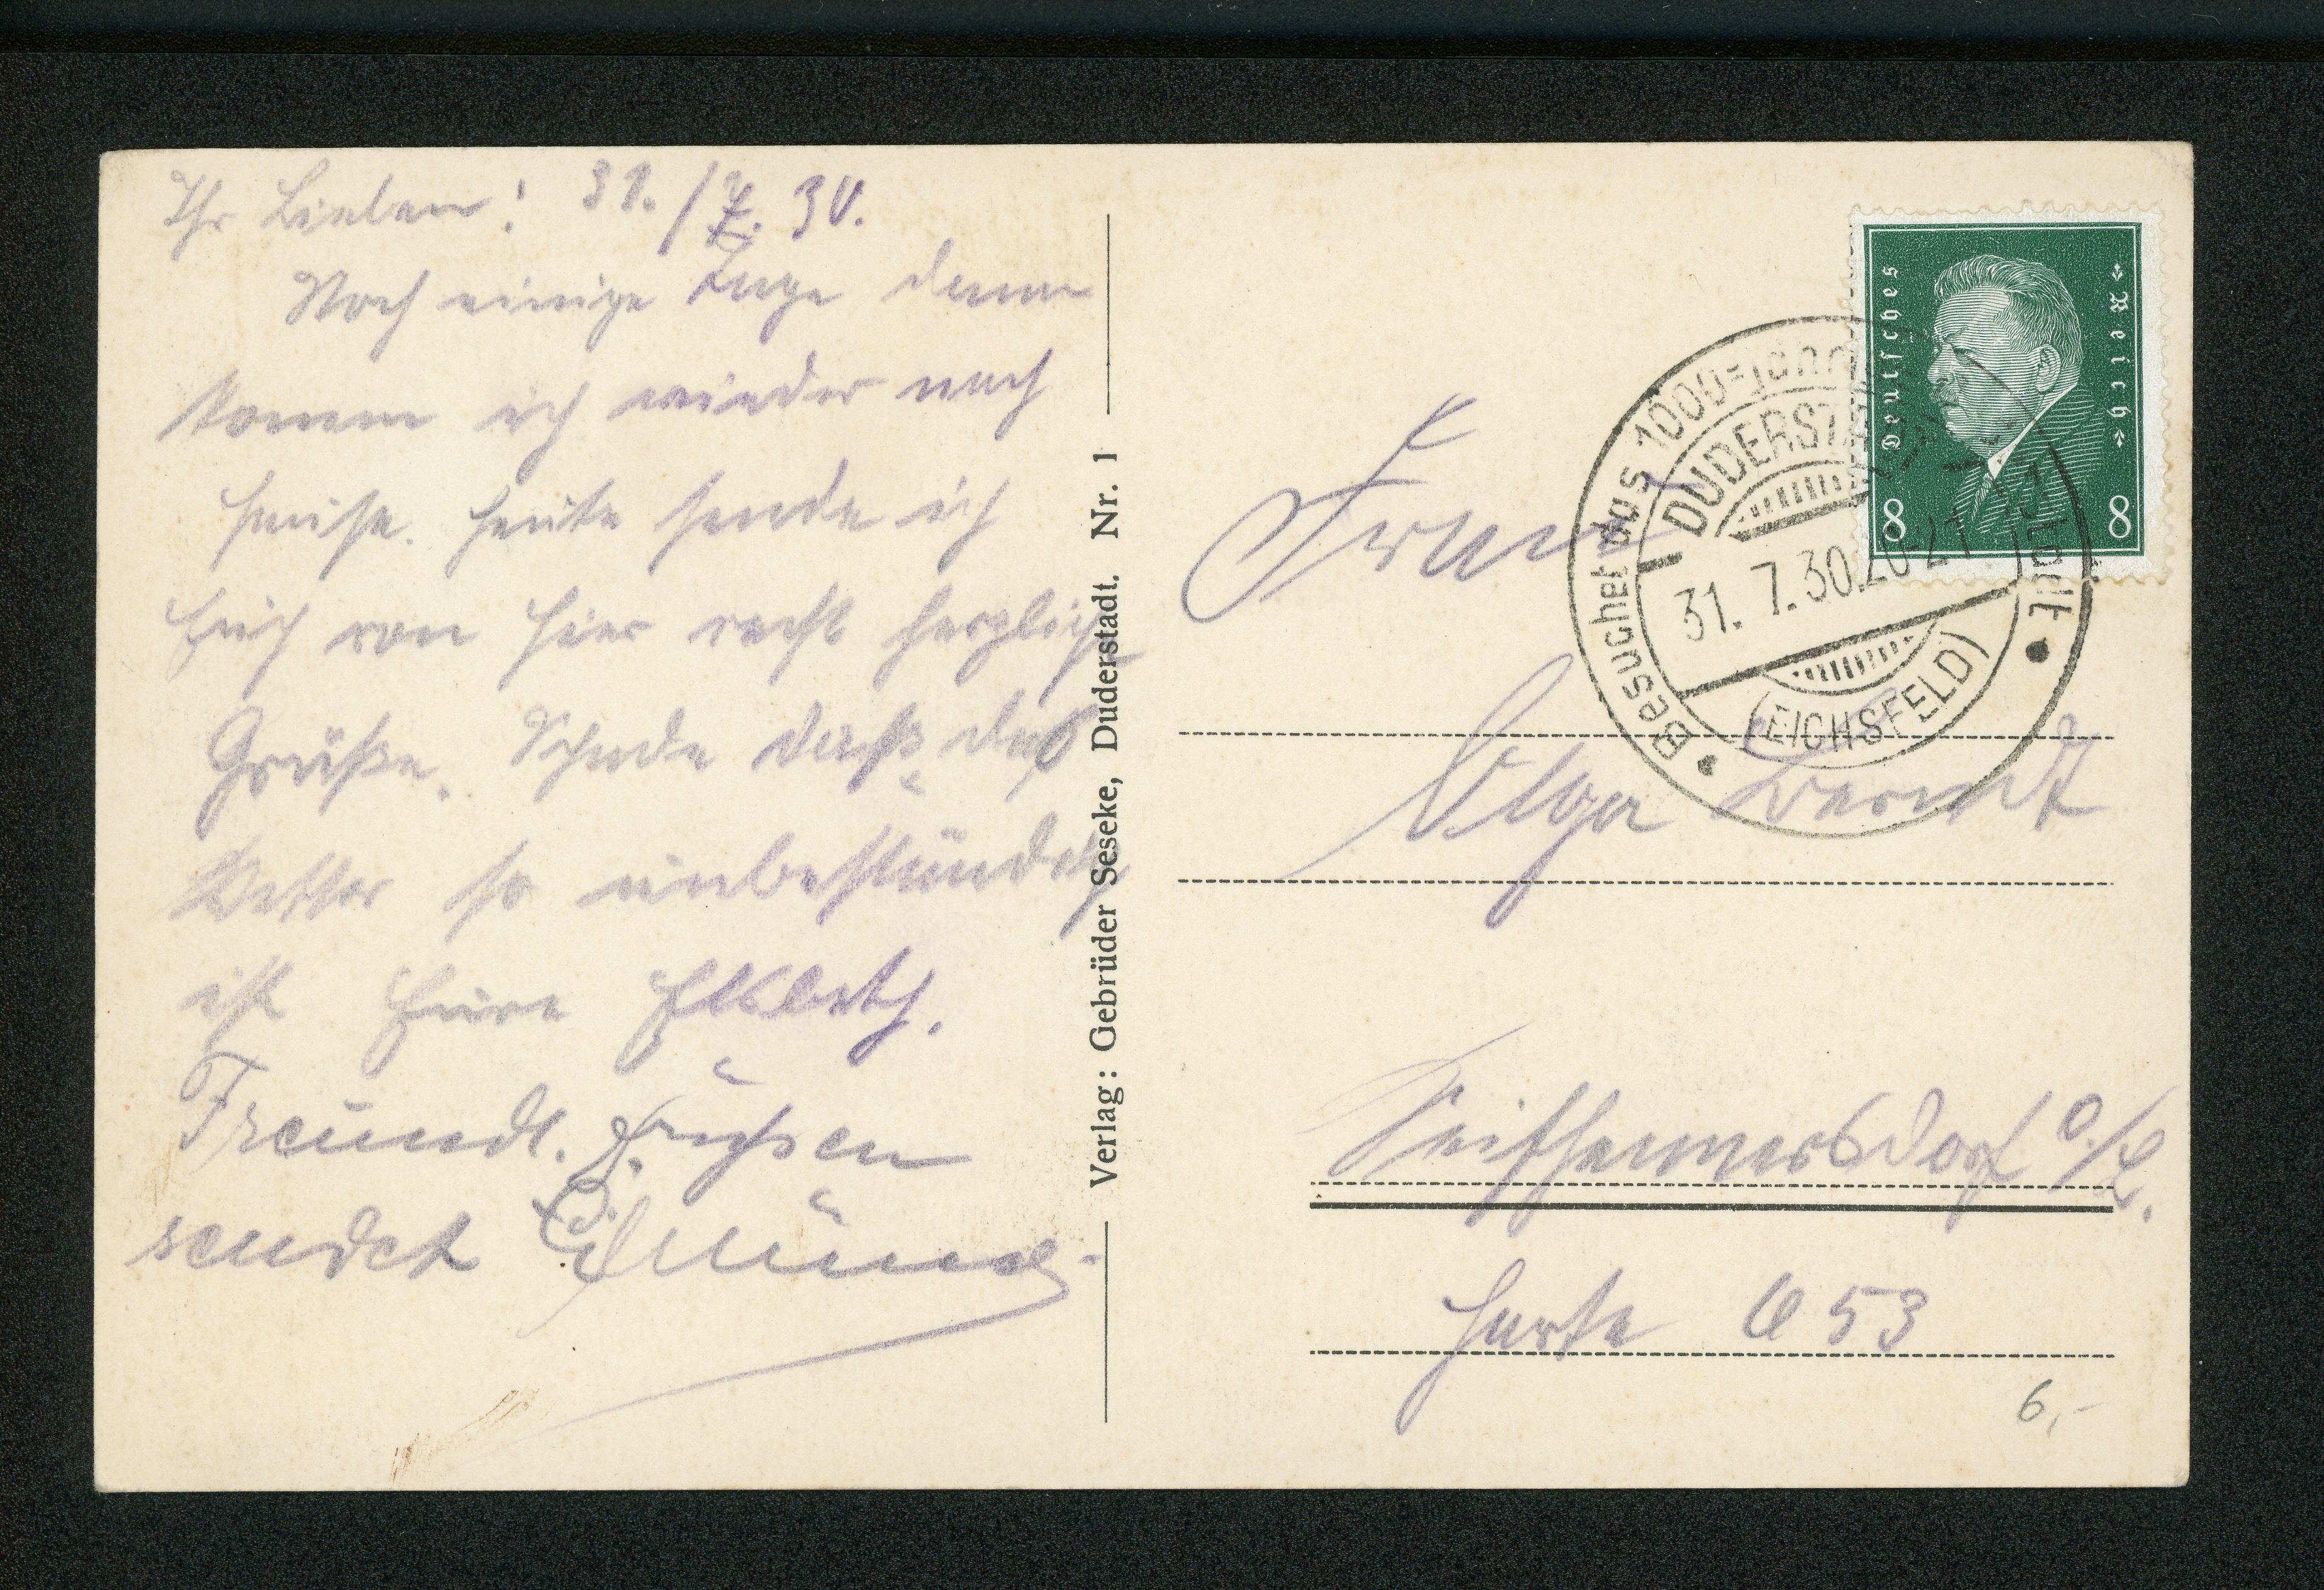 Ihr Lieben! 31./7. 30.
Noch einige Tage dann
komm ich wieder nach
Hause. Heute sende ich
Euch von hier recht herzliche
Grüße. Schade daß das
Wetter so unbeständig
ist Eure Elsbeth.
Freundl. Grüssen
sendet
Verlag: Gebrüder Seseke, Duderstadt. Nr. 1
Deutsches Reich
8 8
Besuchet das 1000-jähr
DUDERSTADT
31. 7. 30. 20-21
(EICHSFELD)
Frau
Olga Berndt
Seifhennersdorf O./L.
Harte C 53
6,-